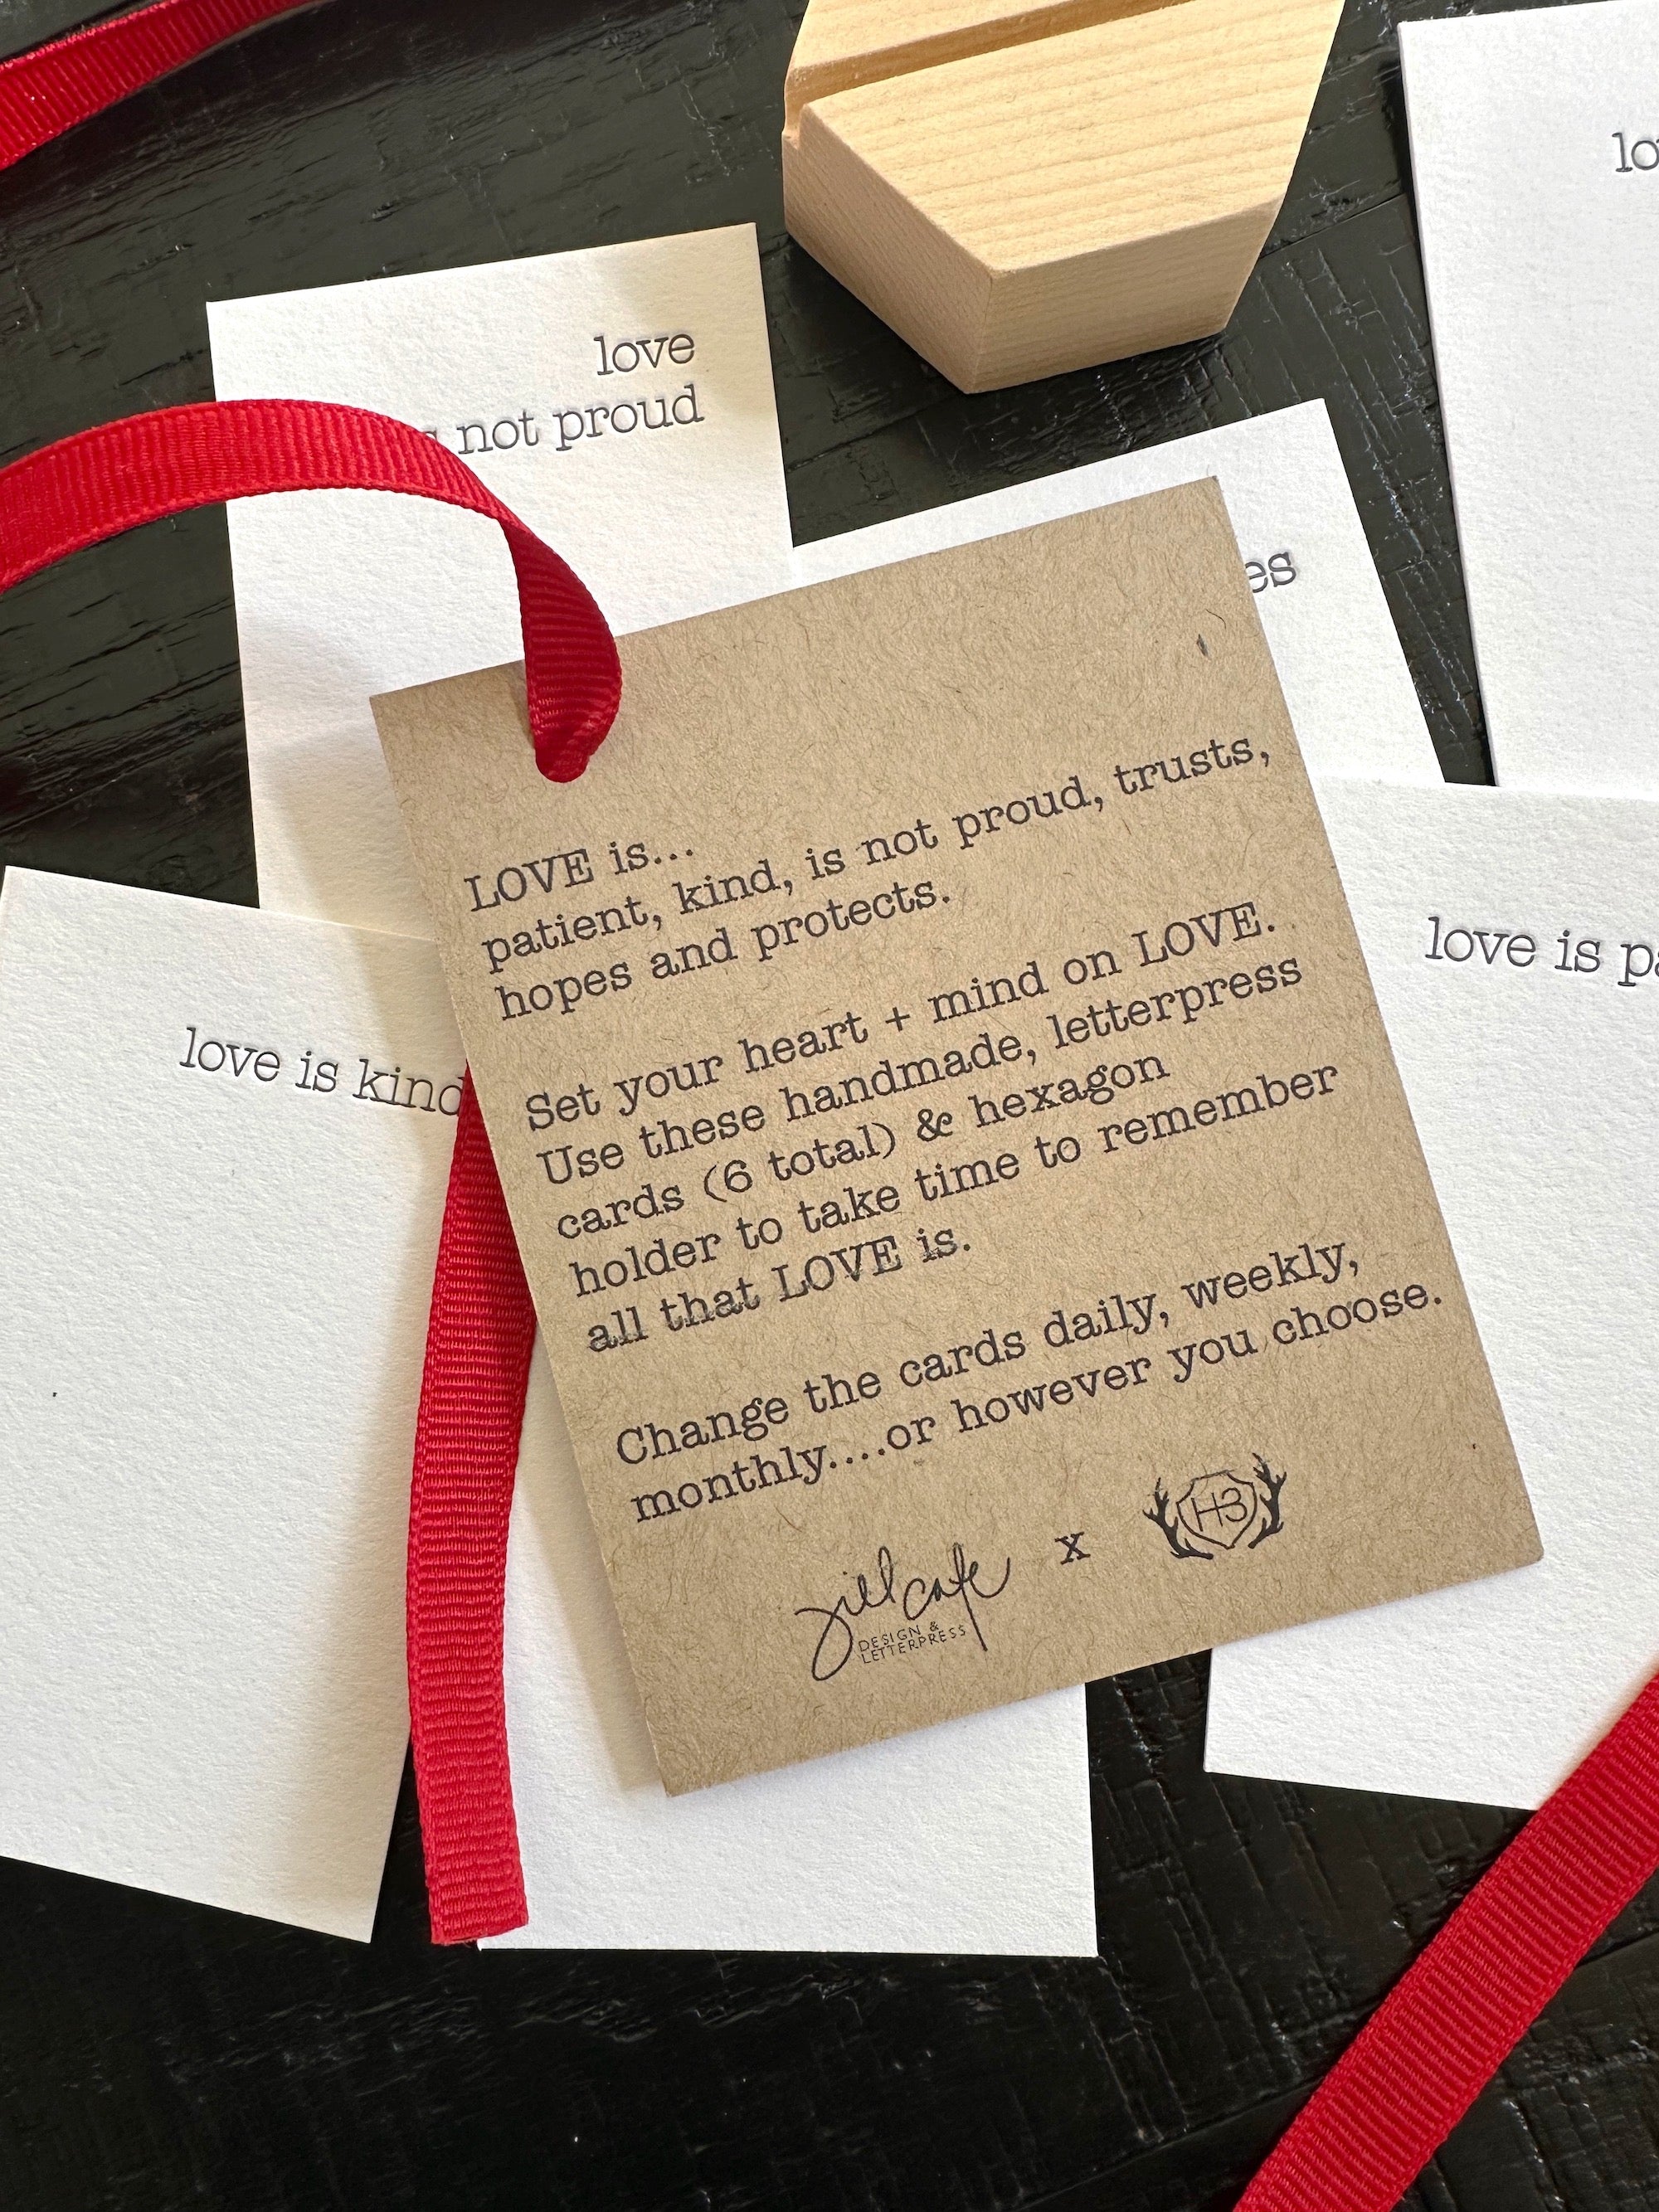 lo
love
not proud
es
LOVE is...
patient, kind, is not proud, trusts,
hopes and protects.
Set your heart + mind on LOVE.
Use these handmade, letterpress
cards (6 total) & hexagon
holder to take time to remember
all that LOVE is.
Change the cards daily, weekly,
monthly....or however you choose.
jill cafe
DESIGN &
LETTERPRESS
x
H3
love is kind
love is pa